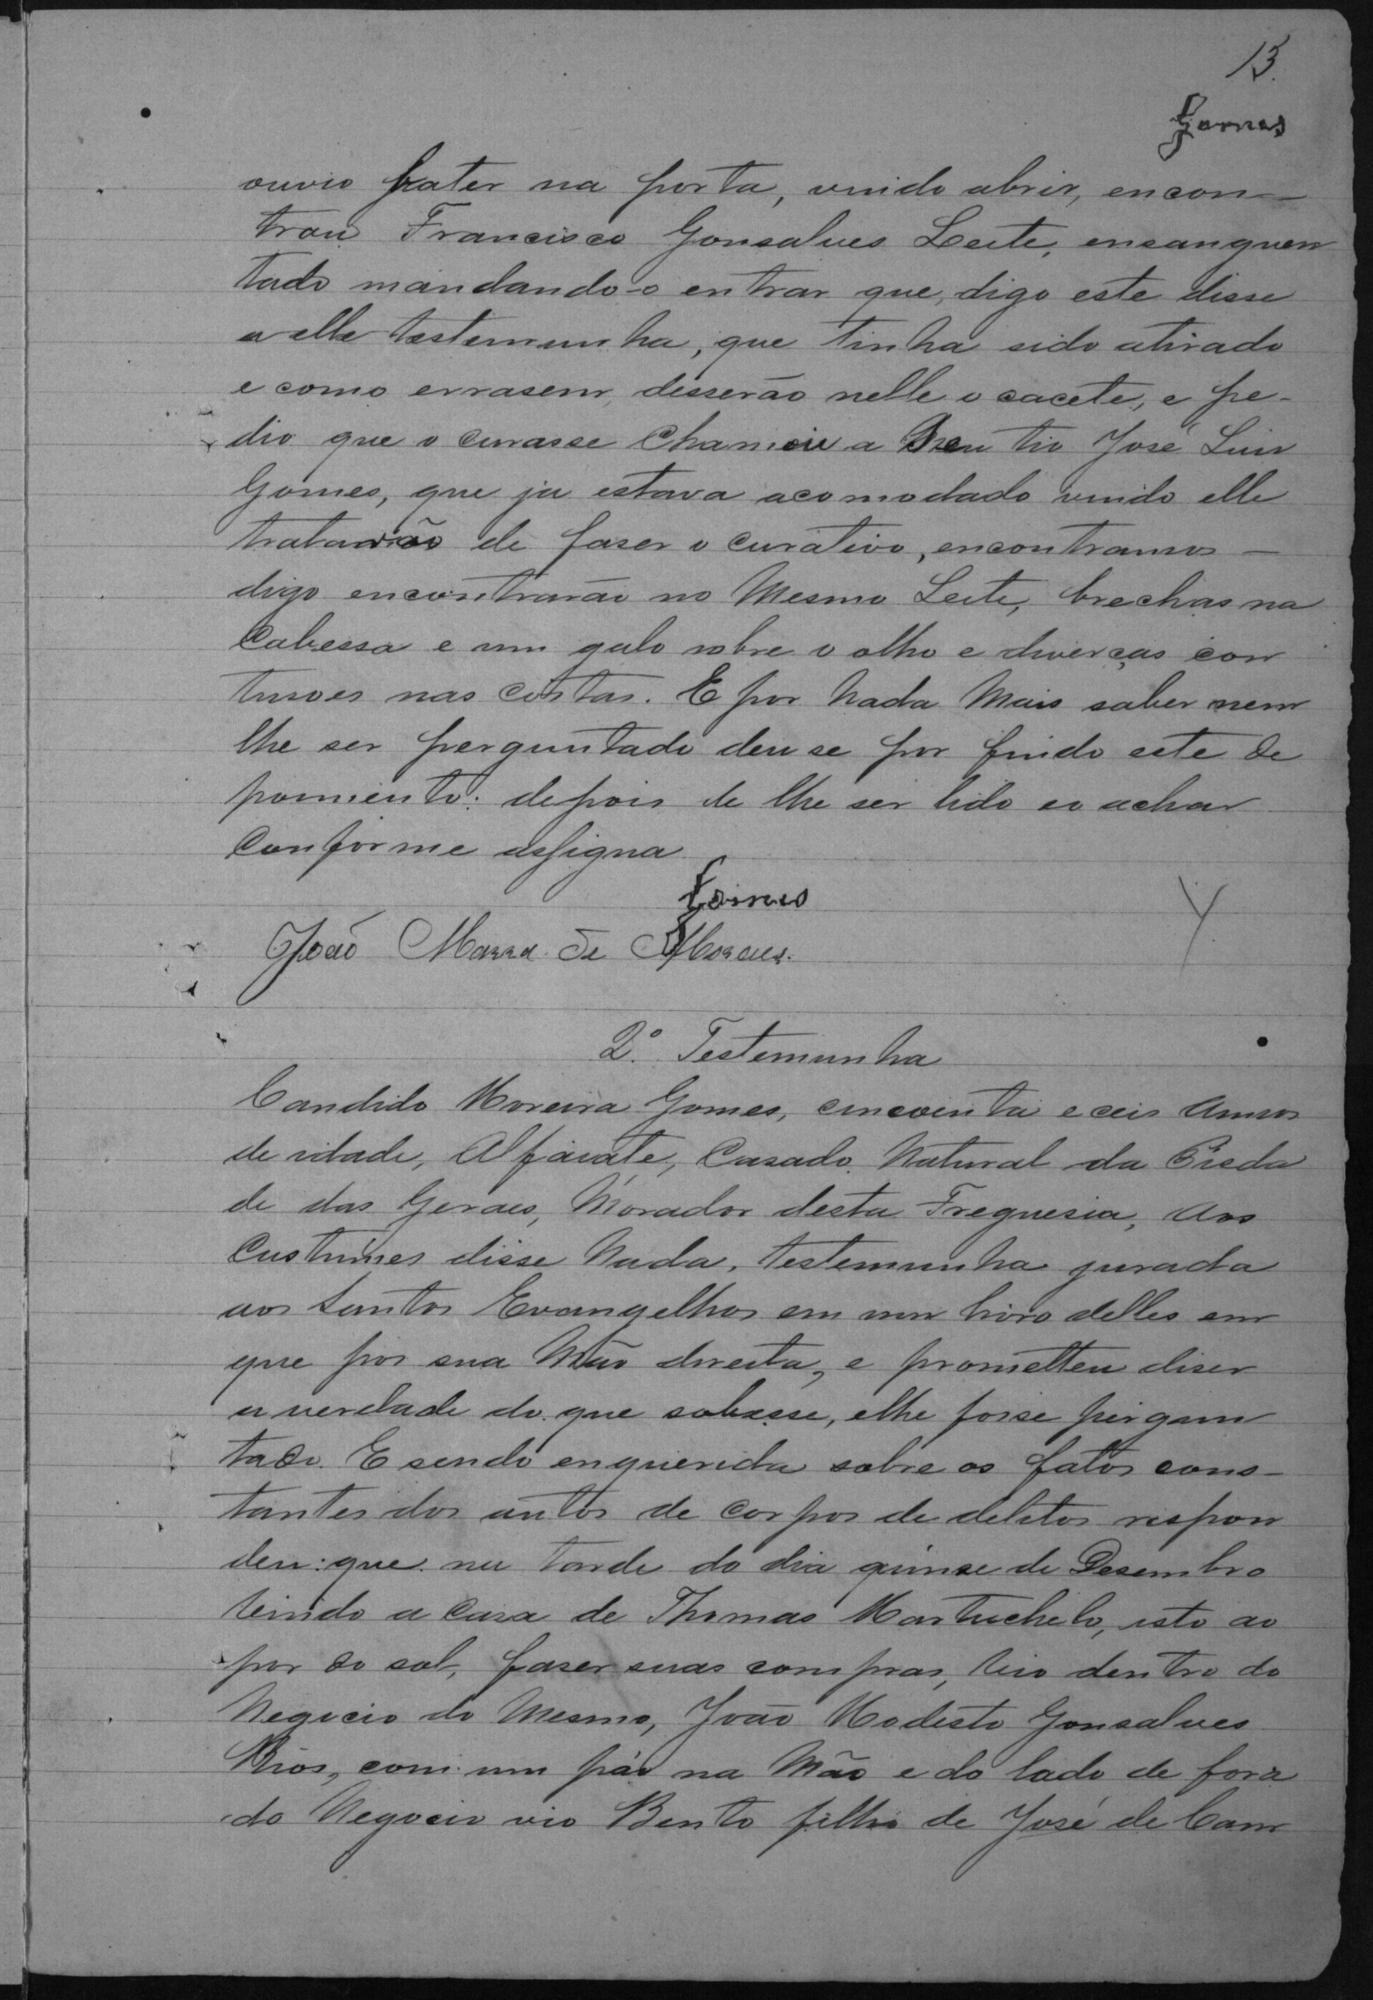 13.
Gomes
ouvio bater na porta, vindo abrir, encon-
trou Francisco Gonsalves Leite, ensanguen
tado mandando-o entrar que, digo este disse
a elle testemunha, que tinha sido atirado
e como errasem, desserão nelle o cacete, e pe-
dio que o curasse chamou a Seu tio José Luis
Gomes, que ja estava acomodado vindo elle
tratarão de faser o curativo, encontramos -
digo encontrarão no Mesmo Leite, brechas na
Cabessa e um galo sobre o olho e diverças con
tusoes nas Costas. E por Nada Mais saber nem
lhe ser perguntado deu se por findo este de
pomiento: depois de lhe ser lido eo achar
Conforme assigna
Gomes
João Marra de Moraes.
2ª. Testemunha
Candido Moreira Gomes, cincointa e ceis Annos
de idade, Alfaiate, Casado. Natural da Pieda
de das Geraes, Morador desta Freguesia, Aos
Custumes disse Nada, testemunha jurada
aos Santos Evangelhos em um livro delles em
que pos sua Mão direita, e prometteu diser
a verdade do que sobesse, elhe fosse pergun
tado. E sendo enquerida sobre os fatos cons-
tantes dos autos de corpos de delitos respon
deu: que na tarde do dia quinse de Desembro
vindo a Casa de Thomas Martuchelo, isto ao
por do sol, faser suas compras, vio dentro do
Negocio do Mesmo, João Modesto Gonsalves
Rios, com um páo na Mão e do lado de fora
do Negocio vio Bento filho de José de Cam